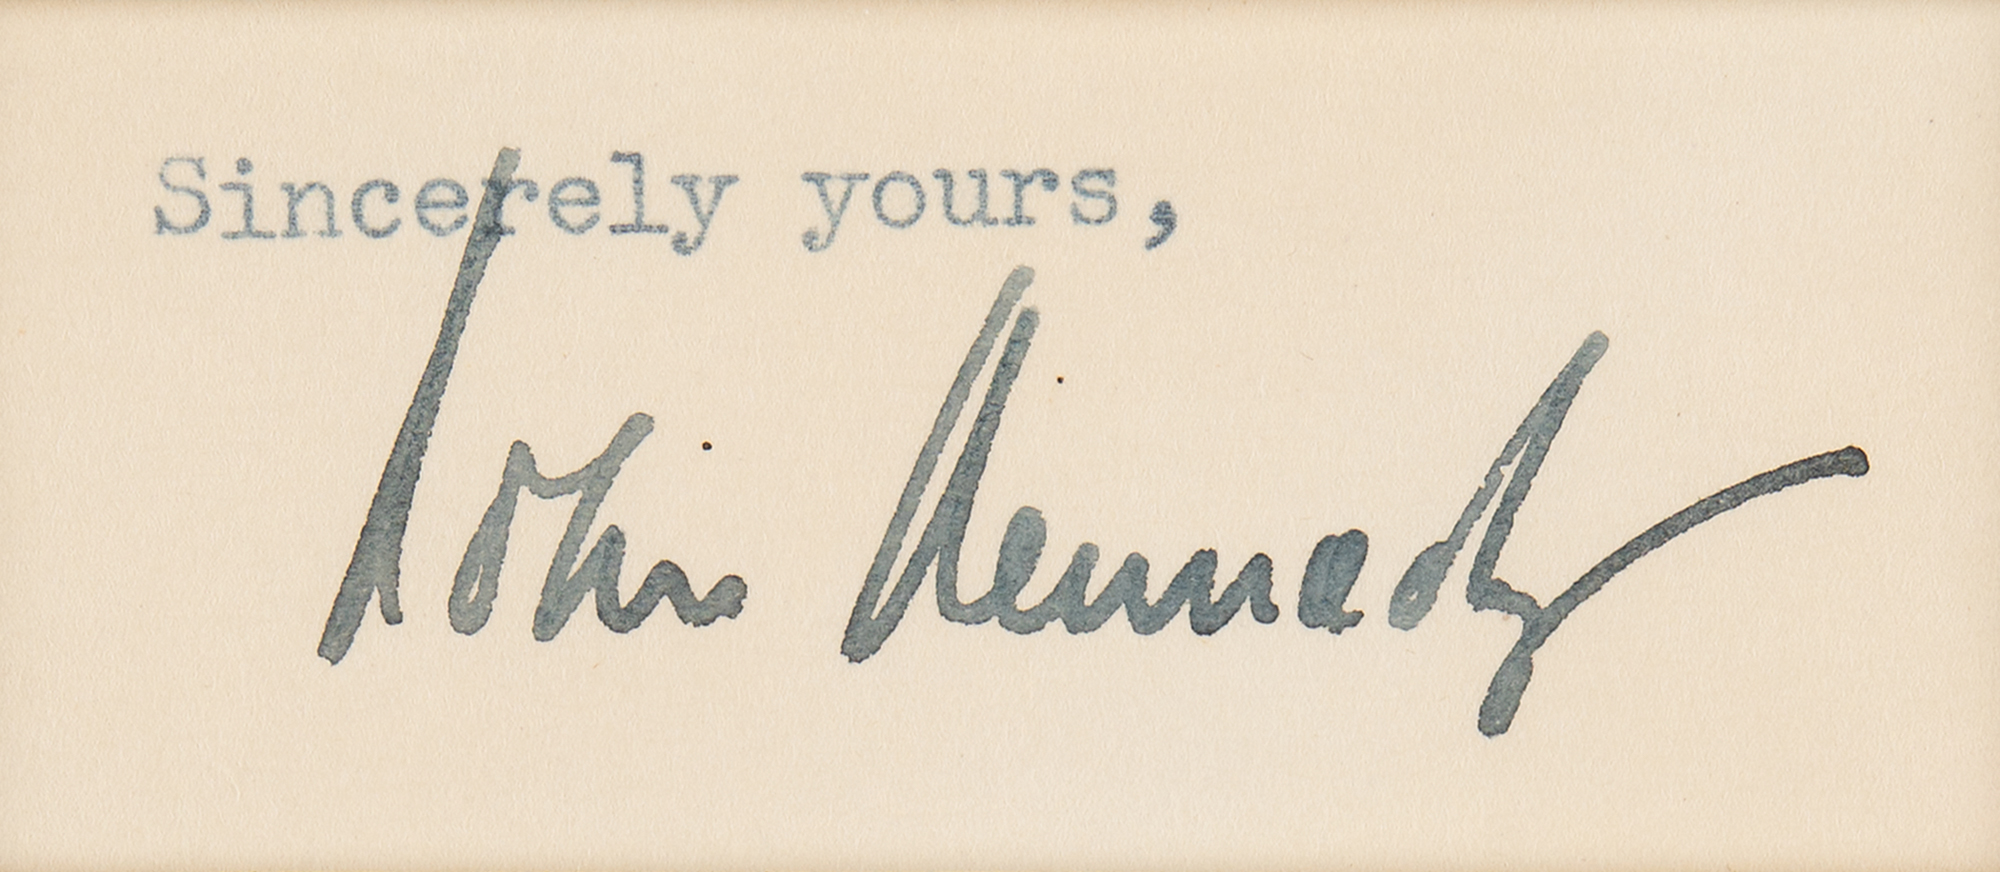 Sincerely yours,
John Kennedy